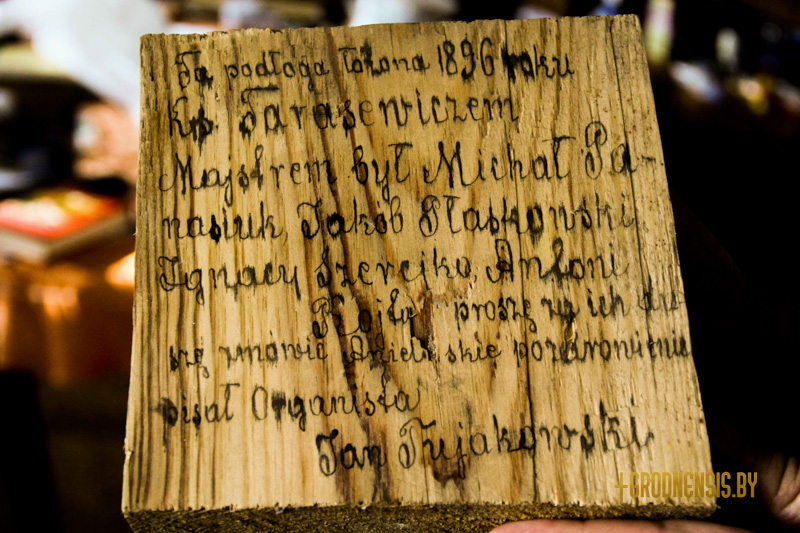 Ta podłoga łożona 1896 roku
Ks Tarasewiczem
Majstrem był Michał Pa-
nasiuk Jakób Płaskowski
Ignacy Szerejko, Antoni
prosze za ich du
szę zmówić Anielskie pozdrowienie
pisał Organista
Jan Tujakowski
GRODNENSIS.BY